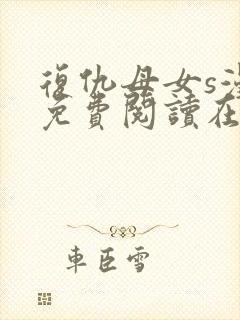 復仇母女s
免費閱讀在
車臣雪